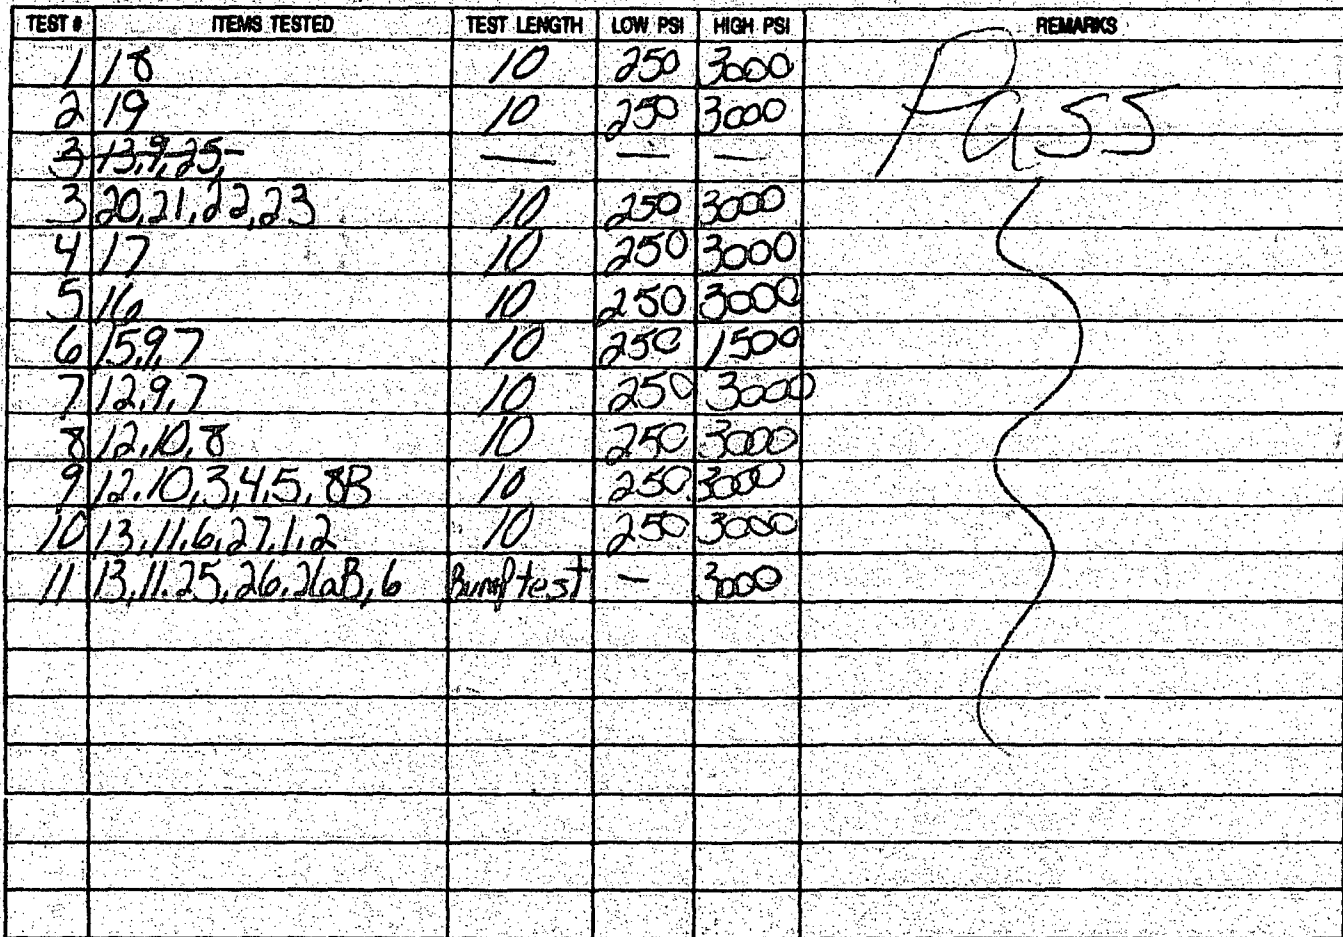 TEST # ITEMS TESTED TEST LENGTH LOW PSI HIGH PSI REMARKS
1 18 10 250 3000 Pass
2 19 10 250 3000
3 13,9,25, — — —
3 20,21,22,23 10 250 3000
4 17 10 250 3000
5 16 10 250 3000
6 15,9,7 10 250 1500
7 12,9,7 10 250 3000
8 12,10,8 10 250 3000
9 12,10,3,4,5,8B 10 250 3000
10 13,11,6,27,1,2 10 250 3000
11 13,11,25,26,26aB,6 Bump test — 3000